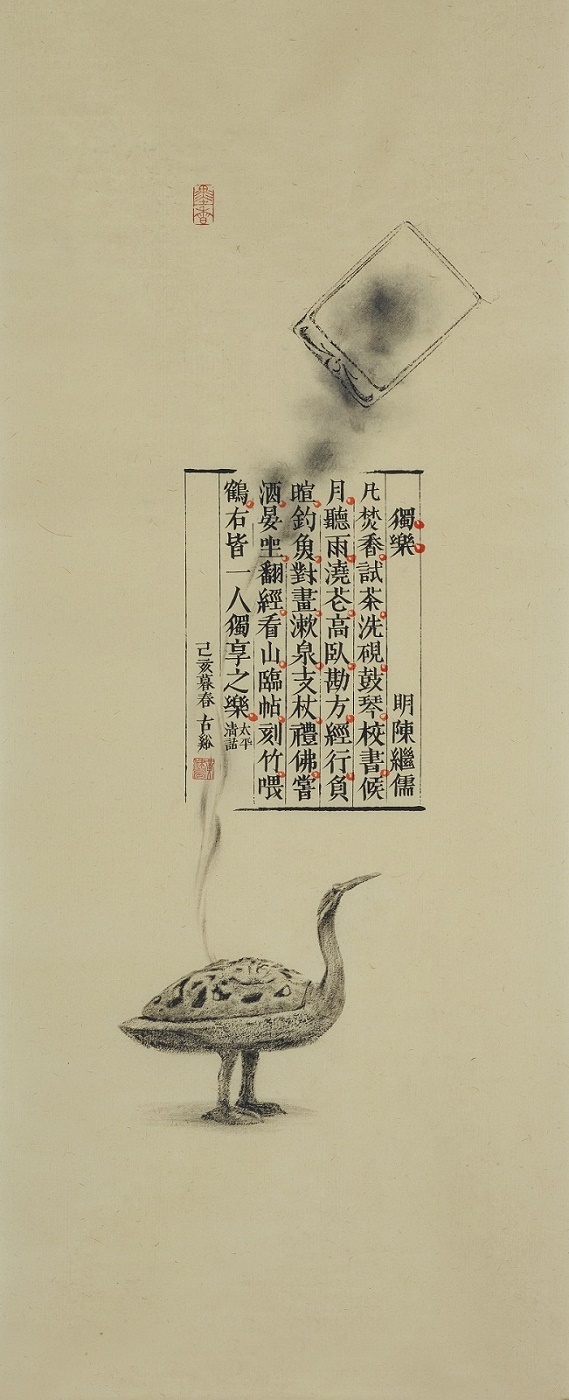 獨樂 明陳繼儒
凡焚香試茶洗硯鼓琴校書候
月聽雨澆花高臥勘方經行負
暄釣魚對畫漱泉支杖禮佛嘗
酒晏坐翻經看山臨帖刻竹喂
鶴右皆一人獨享之樂
太平
清話
己亥暮春 古谿